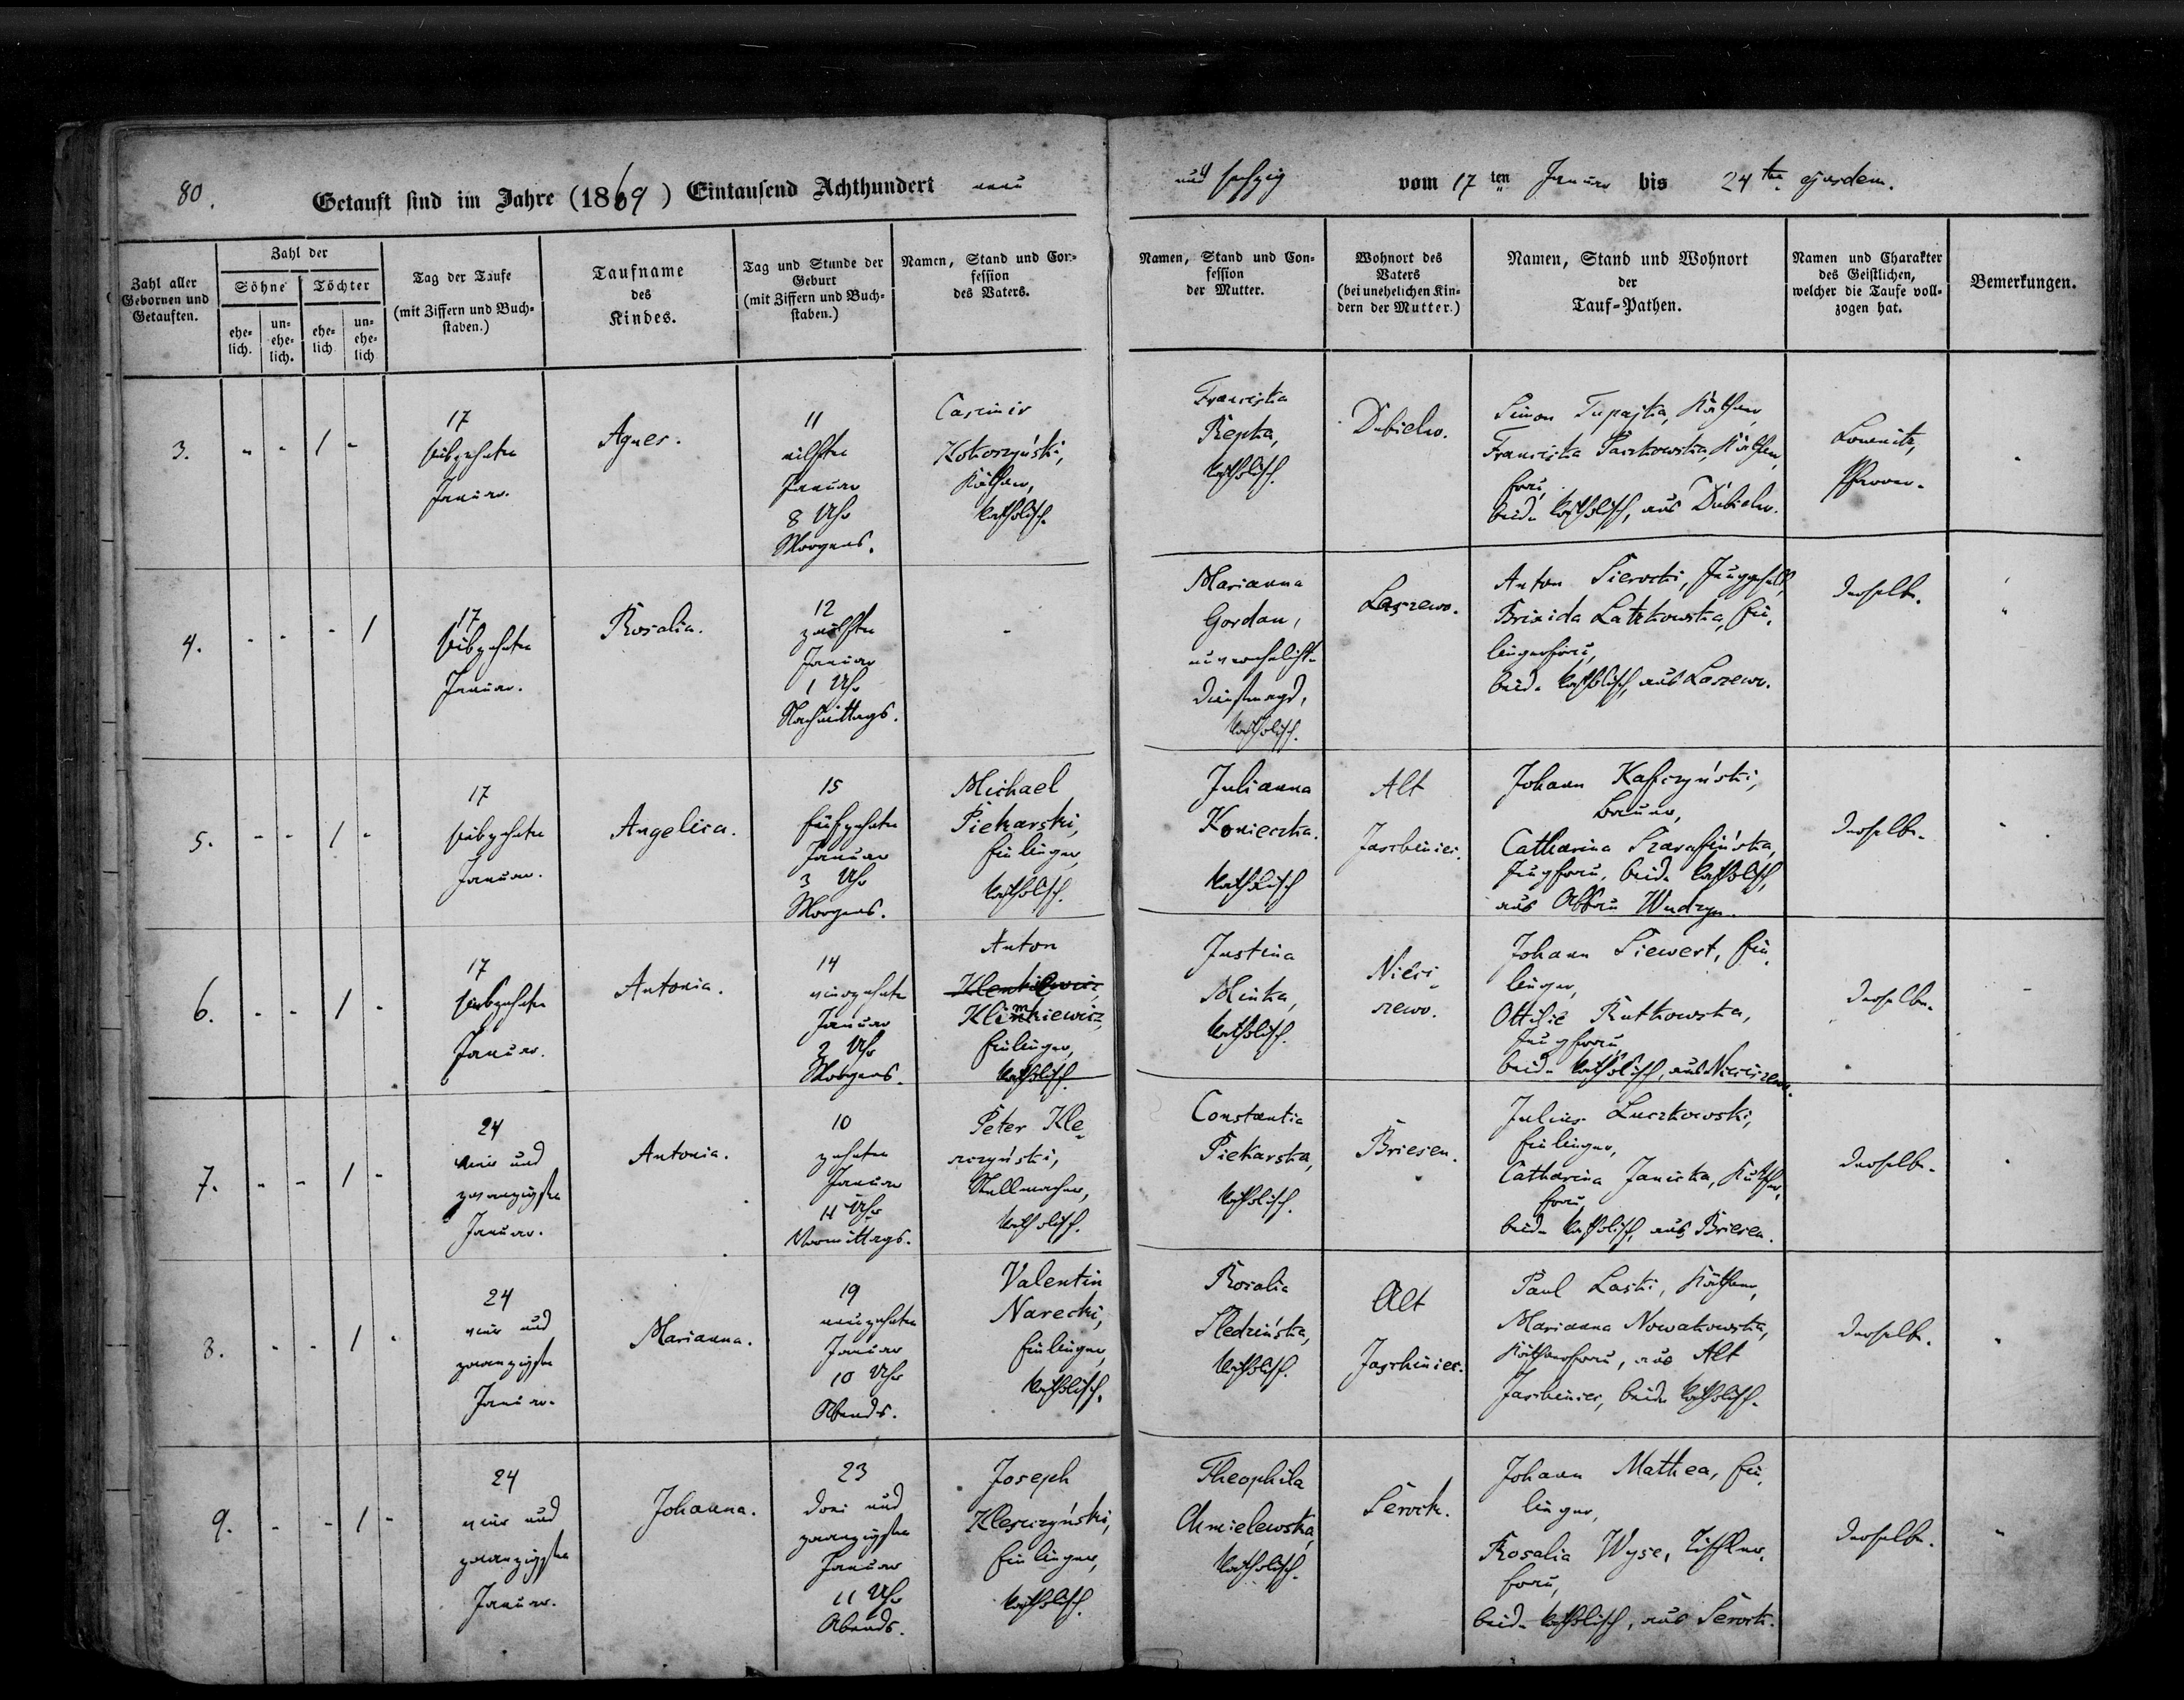 80.
Getauft sind im Jahre (1869) Eintausend Achthundert neun
und sechzig vom 17ten Januar bis 24ten ejusdem.
Zahl aller Gebornen und Getauften.
Zahl der
Söhne
Töchter
ehe-lich.
un-ehe-lich.
ehe-lich
un-ehe-lich
Tag der Taufe (mit Ziffern und Buch-staben.)
Taufname des Kindes.
Tag und Stunde der Geburt (mit Ziffern und Buch-staben.)
Namen, Stand und Con-fession des Vaters.
Namen, Stand und Con-fession der Mutter.
Wohnort des Vaters (bei unehelichen Kin-dern der Mutter.)
Namen, Stand und Wohnort der Tauf-Pathen.
Namen und Charakter des Geistlichen, welcher die Taufe voll-zogen hat.
Bemerkungen.
3. - - 1 -
17
siebzehnten
Januar.
Agnes.
11
eilften
Januar
8 Uhr
Morgens.
Casimir
Kokoszyński,
Käthner,
katholisch.
Franciska
Repka,
katholisch.
Dubielno.
Simon Tupajka, Käthner,
Franciska Paczkowska, Käthner-
frau,
beide katholisch, aus Dubielno.
Pfarrer.
4. - - - 1
17
siebzehnten
Januar.
Rosalia.
12
zwölften
Januar
1 Uhr
Nachmittags.
-
Marianna
Gordon,
unverehelichte
Dienstmagd,
katholisch.
Laszewo.
Anton Sierocki, Junggesell,
Brigida Latzkowska, Ein-
liegerfrau,
beide katholisch, aus Laszewo.
derselbe.
5. - - 1 -
17
siebzehnten
Januar.
Angelica.
15
fünfzehnten
Januar
3 Uhr
Morgens.
Michael
Piekarski,
Einlieger,
katholisch.
Julianna
Konieczka.
katholisch
Alt
Jaschiniec.
Johann Kafczyński,
Bauer,
Catharina Szarafińska,
Jungfrau, beide katholisch,
aus Abbau Wudzyn.
derselbe.
6. - - 1 -
17
siebzehnten
Januar.
Antonia.
14
vierzehnten
Januar
2 Uhr
Morgens.
Anton
Klimkiewicz,
Einlieger,
katholisch.
Justina
Minka,
katholisch.
Nieci-
szewo.
Johann Siewert, Ein-
lieger,
Ottilie Rutkowska,
Jungfrau,
beide katholisch, aus Nieciszewo.
derselbe.
7. - - 1 -
24
vier und
zwanzigsten
Januar.
Antonia.
10
zehnten
Januar
11 Uhr
Vormittags.
Peter Kle-
szczyński,
Stellmacher,
katholisch.
Constantia
Piekarska,
katholisch.
Briesen.
Julius Luczkowski,
Einlieger,
Catharina Janicka, Käthner-
frau,
beide katholisch, aus Briesen.
derselbe.
8. - - 1 -
24
vier und
zwanzigsten
Januar.
Marianna.
19
neunzehnten
Januar
10 Uhr
Abends.
Valentin
Narecki,
Einlieger,
katholisch.
Rosalia
Sledzińska,
katholisch.
Alt
Jaschiniec.
Paul Laski, Käthner,
Marianna Nowakowska,
Käthnerfrau, aus Alt
Jaschiniec, beide katholisch.
derselbe.
9. - - 1 -
24
vier und
zwanzigsten
Januar.
Johanna.
23
drei und
zwanzigsten
Januar
11 Uhr
Abends.
Joseph
Kleszczyński,
Einlieger,
katholisch.
Theophila
Chmielewska,
katholisch.
Serock.
Johann Mathea, Ein-
lieger,
Rosalia Wyse, Tischler-
frau,
beide katholisch, aus Serock.
derselbe.